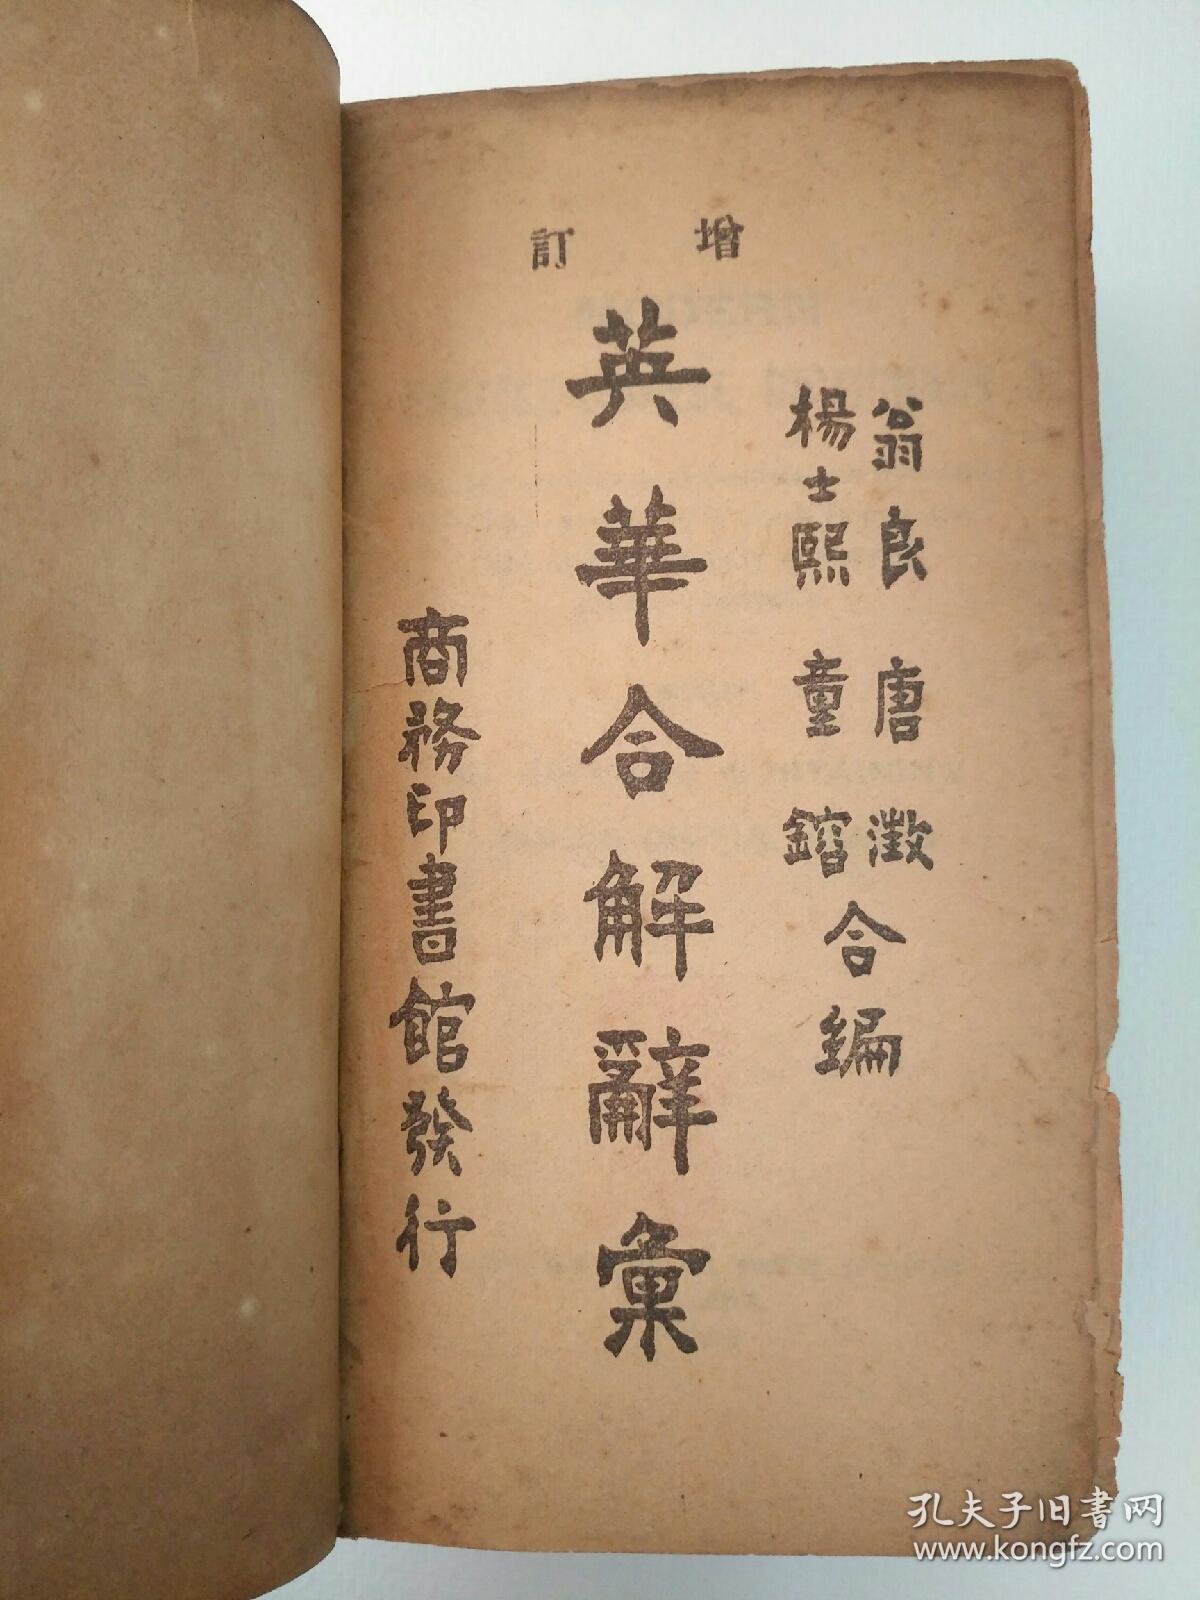 增訂
翁良 唐澂
楊士熙 童鎔
合編
英華合解辭彙
商務印書館發行
孔夫子旧书网
www.kongfz.com